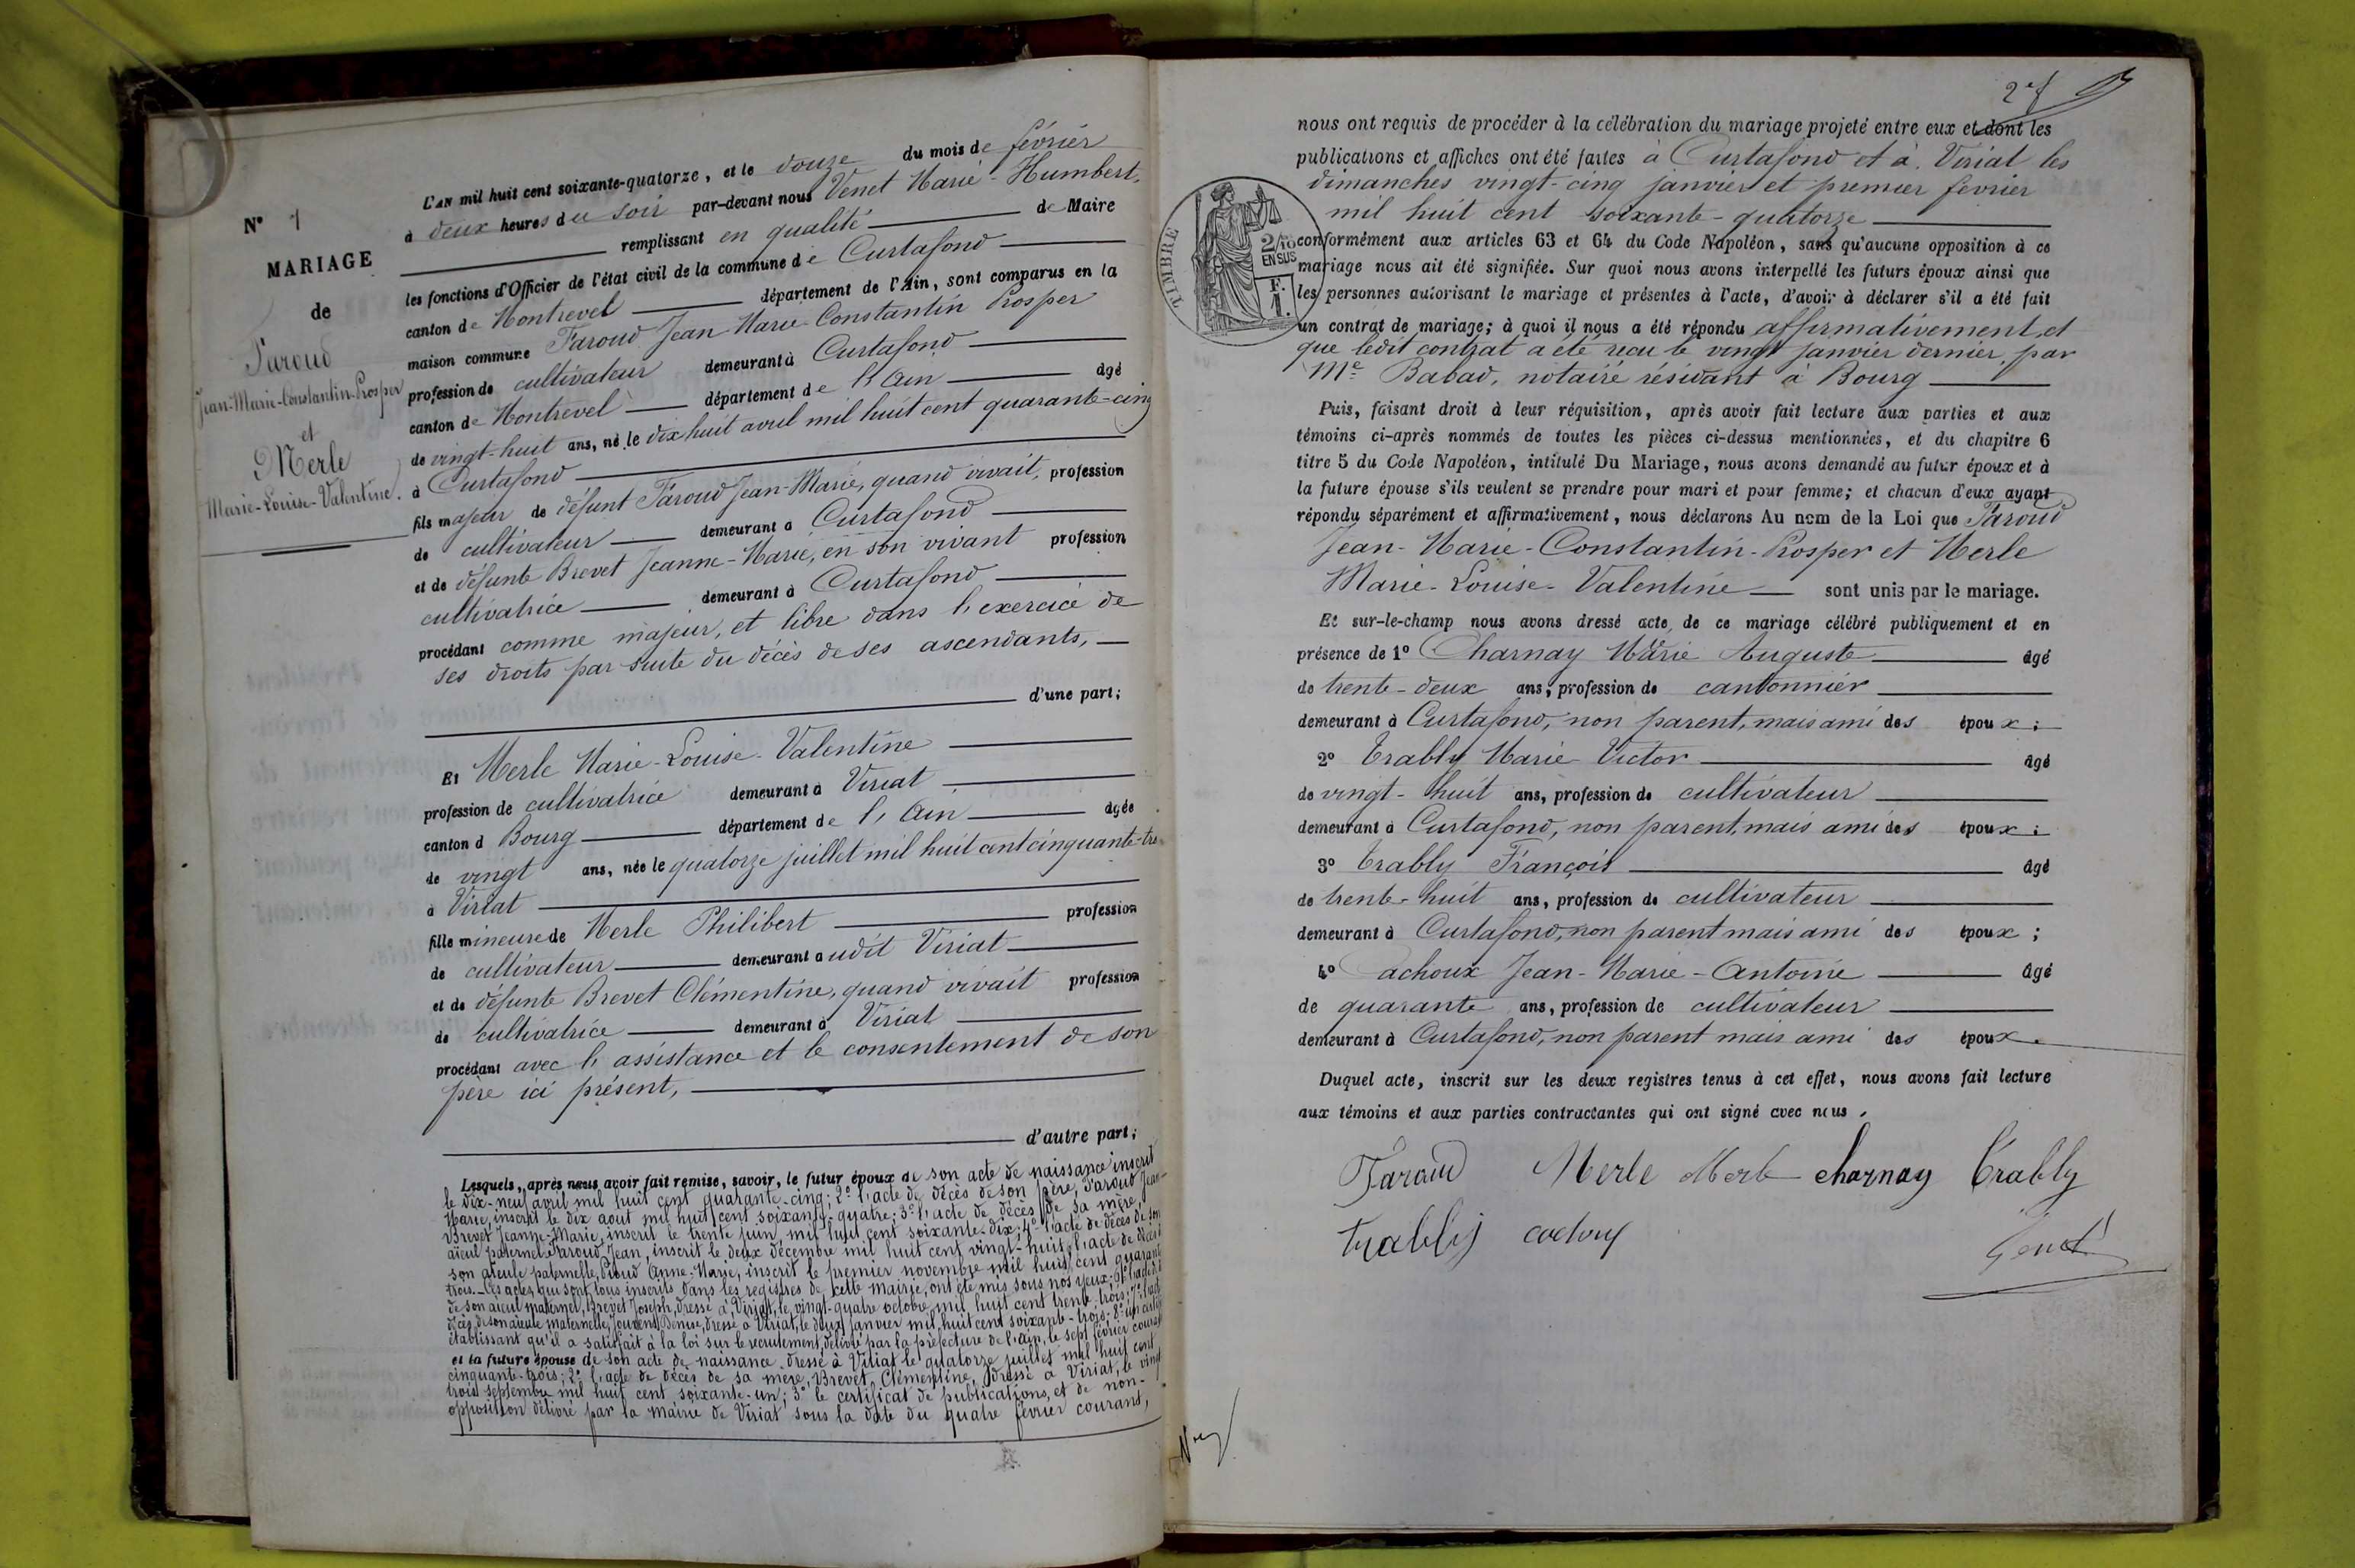 N° 1
MARIAGE
de
Faroud
Jean-Marie-Constantin-Prosper
et
Merle
Marie-Louise-Valentine.
L'AN mil huit cent soixante-quatorze, et le douze du mois de février
à deux heures du soir par-devant nous Venet Marie-Humbert,
remplissant en qualité de Maire
les fonctions d'Officier de l'état civil de la commune de Curtafond
canton de Montrevel département de l'Ain, sont comparus en la
maison commune Faroud Jean-Marie-Constantin Prosper
profession de cultivateur demeurant à Curtafond
canton de Montrevel département de l'Ain âgé
de vingt-huit ans, né le dix huit avril mil huit cent quarante-cinq
à Curtafond
fils majeur de défunt Faroud Jean-Marie, quand vivait, profession
de cultivateur demeurant à Curtafond
et de défunte Brevet Jeanne-Marie, en son vivant profession
cultivatrice demeurant à Curtafond
procédant comme majeur, et libre dans l'exercice de
ses droits par suite du décès de ses ascendants,
d'une part;
Et Merle Marie-Louise-Valentine
profession de cultivatrice demeurant à Viriat
canton d Bourg département de l'Ain âgée
de vingt ans, née le quatorze juillet mil huit cent cinquante-tro
à Viriat
fille mineure de Merle Philibert profession
de cultivateur demeurant audit Viriat
et de défunte Brevet Clémentine, quand vivait profession
de cultivatrice demeurant à Viriat
procédant avec l'assistance et le consentement de son
père ici présent,
d'autre part;
Lesquels, après nous avoir fait remise, savoir, le futur époux de son acte de naissance inscrit
le dix-neuf avril mil huit cent quarante-cinq; 2° l'acte de décès de son père, Faroud Jean-
Marie, inscrit le dix aout mil huit cent soixante-quatre; 3° l'acte de décès de sa mère,
Brevet Jeanne-Marie, inscrit le trente juin mil huit cent soixante-dix; 4° l'acte de décès de son
aïeul paternel Faroud Jean, inscrit le deux décembre mil huit cent vingt-huit, l'acte de décès
son aïeule paternelle, Anne-Marie, inscrit le premier novembre mil huit cent quarante
trois. Ces actes, qui sont tous inscrits dans les registres de cette mairie, ont été mis sous nos yeux; 6° l'acte de
de son aïeul maternel, Brevet Joseph, dressé à Viriat, le vingt-quatre octobre mil huit cent trente-trois; 7° l'acte
décès de son aïeule maternelle, Denise, dressé à Viriat, le deux janvier mil huit cent soixante-trois; 8° un certifi
établissant qu'il a satisfait à la loi sur le recrutement, délivré par la préfecture de l'Ain, le sept février courant
et la future épouse de son acte de naissance dressé à Viriat le quatorze juillet mil huit cent
cinquante-trois; 2° l'acte de décès de sa mère, Brevet Clémentine, dressé à Viriat, le vingt
trois septembre mil huit cent soixante-un; 3° le certificat de publications, et de non-
opposition délivré par la mairie de Viriat sous la date du quatre février courant,
nous ont requis de procéder à la célébration du mariage projeté entre eux et dont les
publications et affiches ont été faites à Curtafond et à Viriat les
dimanches vingt-cinq janvier et premier février
mil huit cent soixante-quatorze
TIMBRE
2/10
EN SUS
F.
1.
conformément aux articles 63 et 64 du Code Napoléon, sans qu'aucune opposition à ce
mariage nous ait été signifiée. Sur quoi nous avons interpellé les futurs époux ainsi que
les personnes autorisant le mariage et présentes à l'acte, d'avoir à déclarer s'il a été fait
un contrat de mariage; à quoi il nous a été répondu affirmativement, et
que ledit contrat a été reçu le vingt janvier dernier, par
Me Babad, notaire résidant à Bourg
Puis, faisant droit à leur réquisition, après avoir fait lecture aux parties et aux
témoins ci-après nommés de toutes les pièces ci-dessus mentionnées, et du chapitre 6
titre 5 du Code Napoléon, intitulé Du Mariage, nous avons demandé au futur époux et à
la future épouse s'ils veulent se prendre pour mari et pour femme; et chacun d'eux ayant
répondu séparément et affirmativement, nous déclarons Au nom de la Loi que Faroud
Jean-Marie-Constantin-Prosper et Merle
Marie-Louise-Valentine sont unis par le mariage.
Et sur-le-champ nous avons dressé acte de ce mariage célébré publiquement et en
présence de 1° Charnay Marie Auguste âgé
de trente-deux ans, profession de cantonnier
demeurant à Curtafond, non parent, mais ami des époux;
2° Trably Marie Victor âgé
de vingt-huit ans, profession de cultivateur
demeurant à Curtafond, non parent, mais ami des époux;
3° Trably François âgé
de trente-huit ans, profession de cultivateur
demeurant à Curtafond, non parent mais ami des époux;
4° Cachoux Jean-Marie-Antoine âgé
de quarante ans, profession de cultivateur
demeurant à Curtafond, non parent mais ami des époux.
Duquel acte, inscrit sur les deux registres tenus à cet effet, nous avons fait lecture
aux témoins et aux parties contractantes qui ont signé avec nous.
Faroud Merle Merle charnay Trably
trably